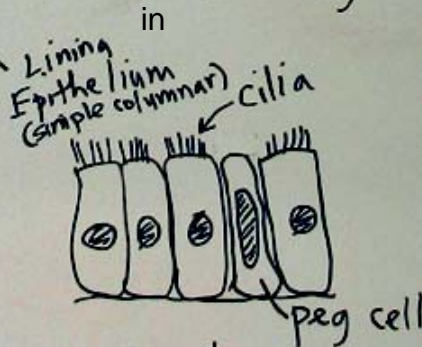 in
Lining
Eprthelium
(simple columnar)
cilia
peg cell